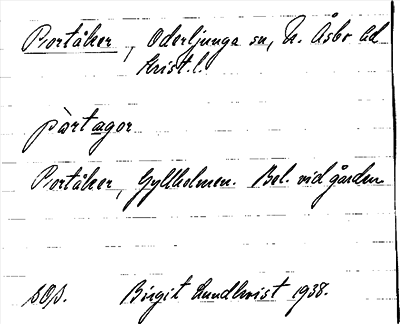 Portåker, Oderljunga sn, N. Åsbo hd
Krist. l.
pàrtagor
Portåker, Gyllholmen. Bel. vid gården
Birgit Lundkvist 1938.